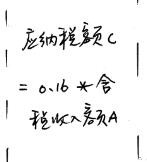 应纳税额C
= 0.16 * 含
税收入额A